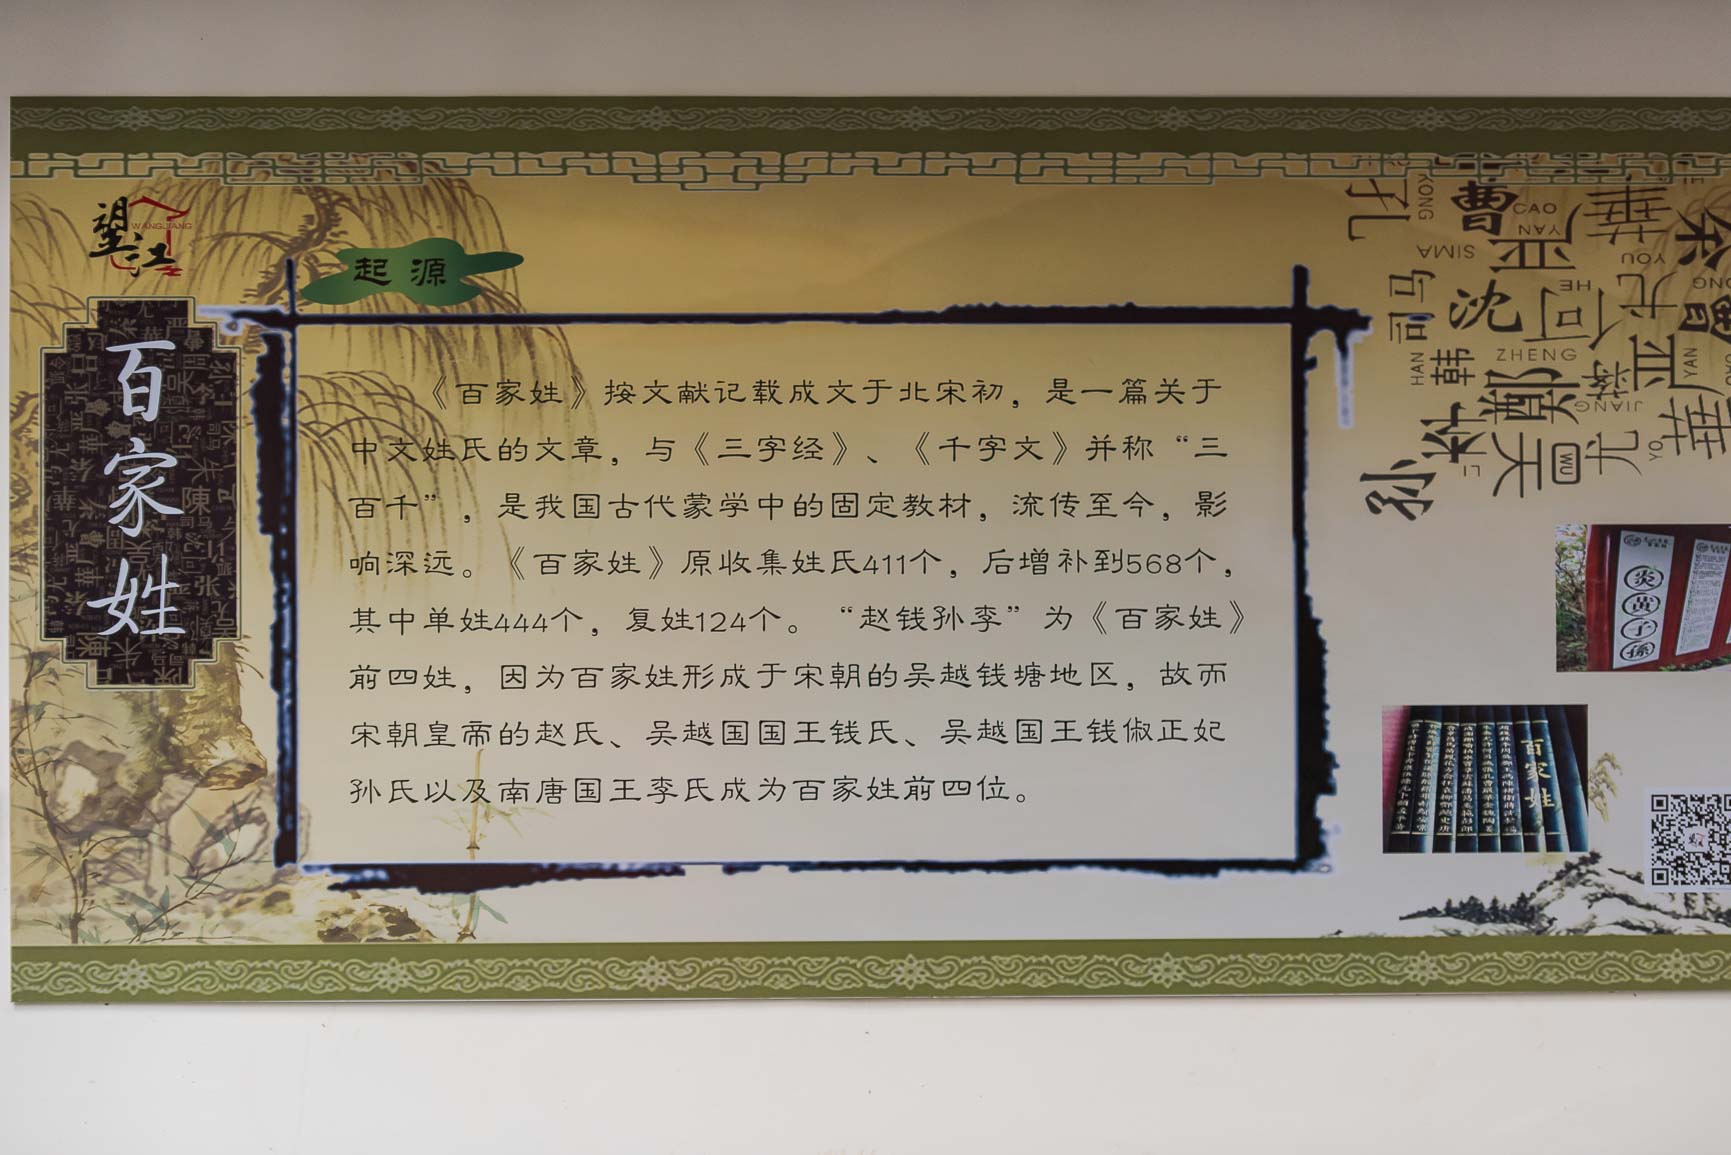 望江
WANGJIANG
百家姓
起源
《百家姓》按文献记载成文于北宋初，是一篇关于
中文姓氏的文章，与《三字经》、《千字文》并称“三
百千”，是我国古代蒙学中的固定教材，流传至今，影
响深远。《百家姓》原收集姓氏411个，后增补到568个，
其中单姓444个，复姓124个。“赵钱孙李”为《百家姓》
前四姓，因为百家姓形成于宋朝的吴越钱塘地区，故而
宋朝皇帝的赵氏、吴越国国王钱氏、吴越国王钱俶正妃
孙氏以及南唐国王李氏成为百家姓前四位。
孔
KONG
曹
CAO
YAN
華
徐
SIMA
YOU
司马
沈
何
HE
尤
曹
HAN
韩
ZHENG
鄭
蒋
JIANG
严
YAN
孙
朴
吴
WU
尤
YO
華
炎黄子孫
百家姓